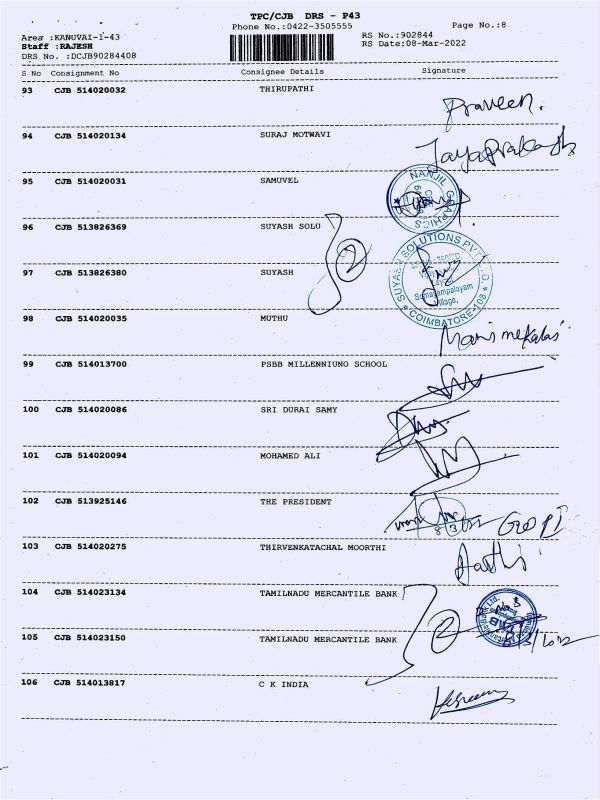 TPC/CJB DRS - P43
Phone No.:0422-3505555
Page No.:8
Area :KANUVAI-1-43
RS No.:902844
Staff :RAJESH
RS Date:08-Mar-2022
DRS No. :DCJB90284408
S No Consignment No Consignee Details Signature
93 CJB 514020032 THIRUPATHI
Praveen.
94 CJB 514020134 SURAJ MOTWAVI
Jayaprakash
95 CJB 514020031 SAMUVEL
NANJIL GRAPHICS
96 CJB 513826369 SUYASH SOLU
2
97 CJB 513826380 SUYASH
SUYASH SOLUTIONS PVT LTD
Somayampalayam
Village,
COIMBATORE-108
98 CJB 514020035 MUTHU
Manimekalai
99 CJB 514013700 PSBB MILLENNIUNO SCHOOL
100 CJB 514020086 SRI DURAI SAMY
101 CJB 514020094 MOHAMED ALI
102 CJB 513925146 THE PRESIDENT
GOPI
103 CJB 514020275 THIRVENKATACHAL MOORTHI
Aarthi
104 CJB 514023134 TAMILNADU MERCANTILE BANK
2
105 CJB 514023150 TAMILNADU MERCANTILE BANK
106 CJB 514013817 C K INDIA